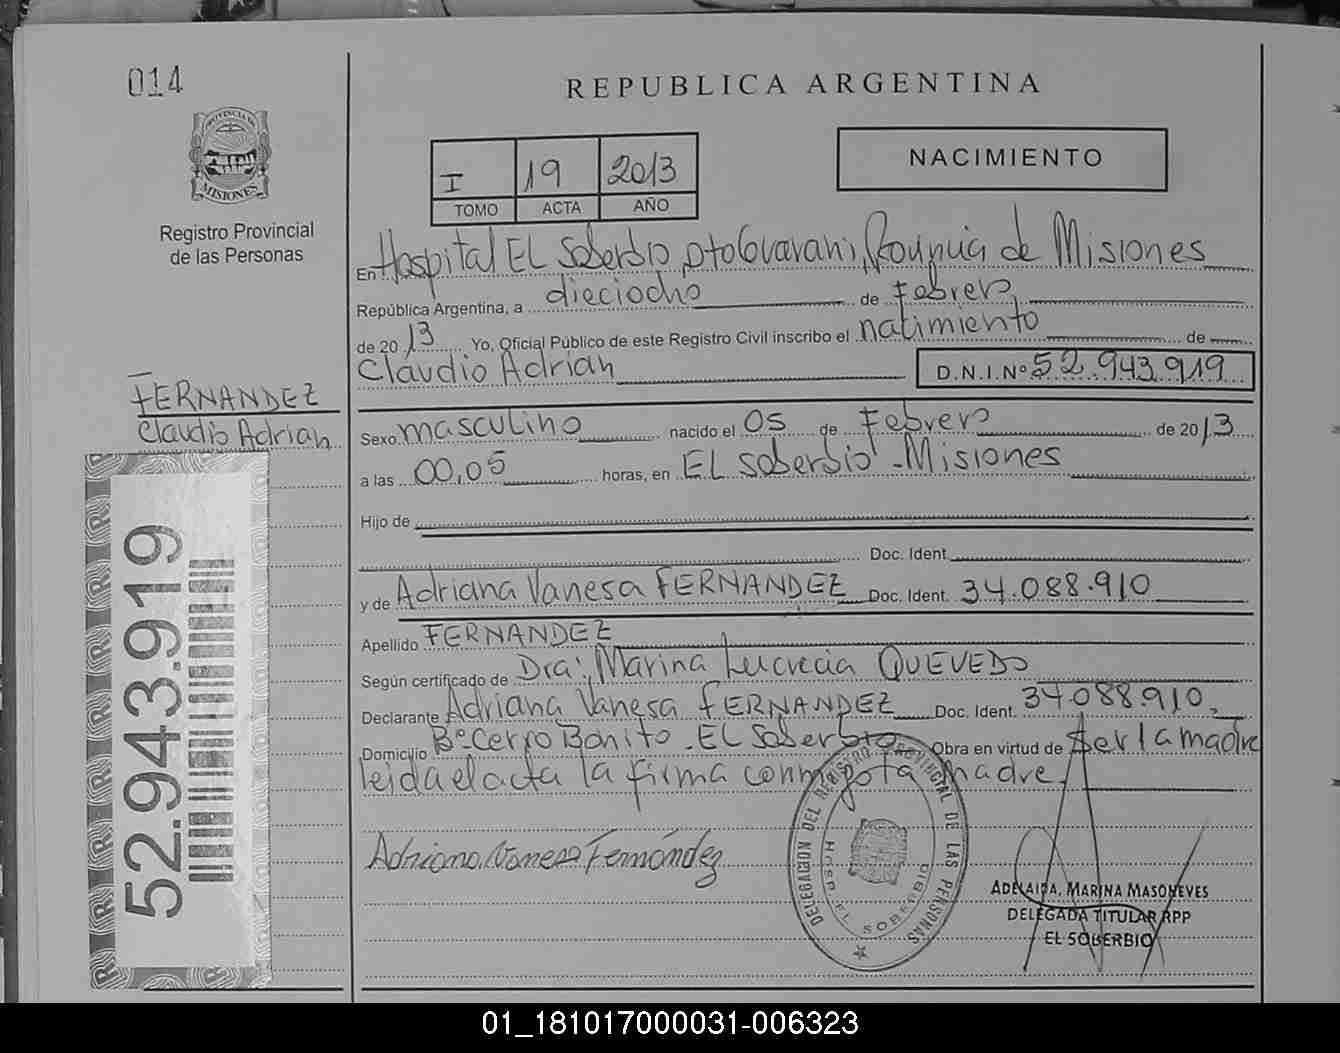 014
REPUBLICA ARGENTINA
PROVINCIA DE
MISIONES
Registro Provincial
de las Personas
I 19 2013
TOMO ACTA AÑO
NACIMIENTO
En Hospital EL Soberbio, Dto Guarani, Provincia de Misiones
República Argentina, a dieciocho de Febrero
de 20 13 Yo, Oficial Público de este Registro Civil inscribo el nacimiento de
Claudio Adrian D.N.I.Nº 52.943.919
FERNANDEZ
Claudio Adrian
Sexo masculino nacido el 05 de Febrero de 20 13
a las 00,05 horas, en EL Soberbio - Misiones
Hijo de
Doc. Ident.
y de Adriana Vanesa FERNANDEZ Doc. Ident. 34.088.910
Apellido FERNANDEZ
Según certificado de Dra: Marina Lucrecia QUEVEDO
Declarante Adriana Vanesa FERNANDEZ Doc. Ident. 34088.910,
Domicilio Bº Cerro Bonito - EL Soberbio Obra en virtud de ser la madre
leida el acta la firma conmigo la madre.
52.943.919
Adriana Vanesa Fernández
DELEGACION DEL REGISTRO PROVINCIAL DE LAS PERSONAS
HOSP. EL SOBERBIO
ADELAIDA. MARINA MASONEVES
DELEGADA TITULAR RPP
EL SOBERBIO
01_181017000031-006323